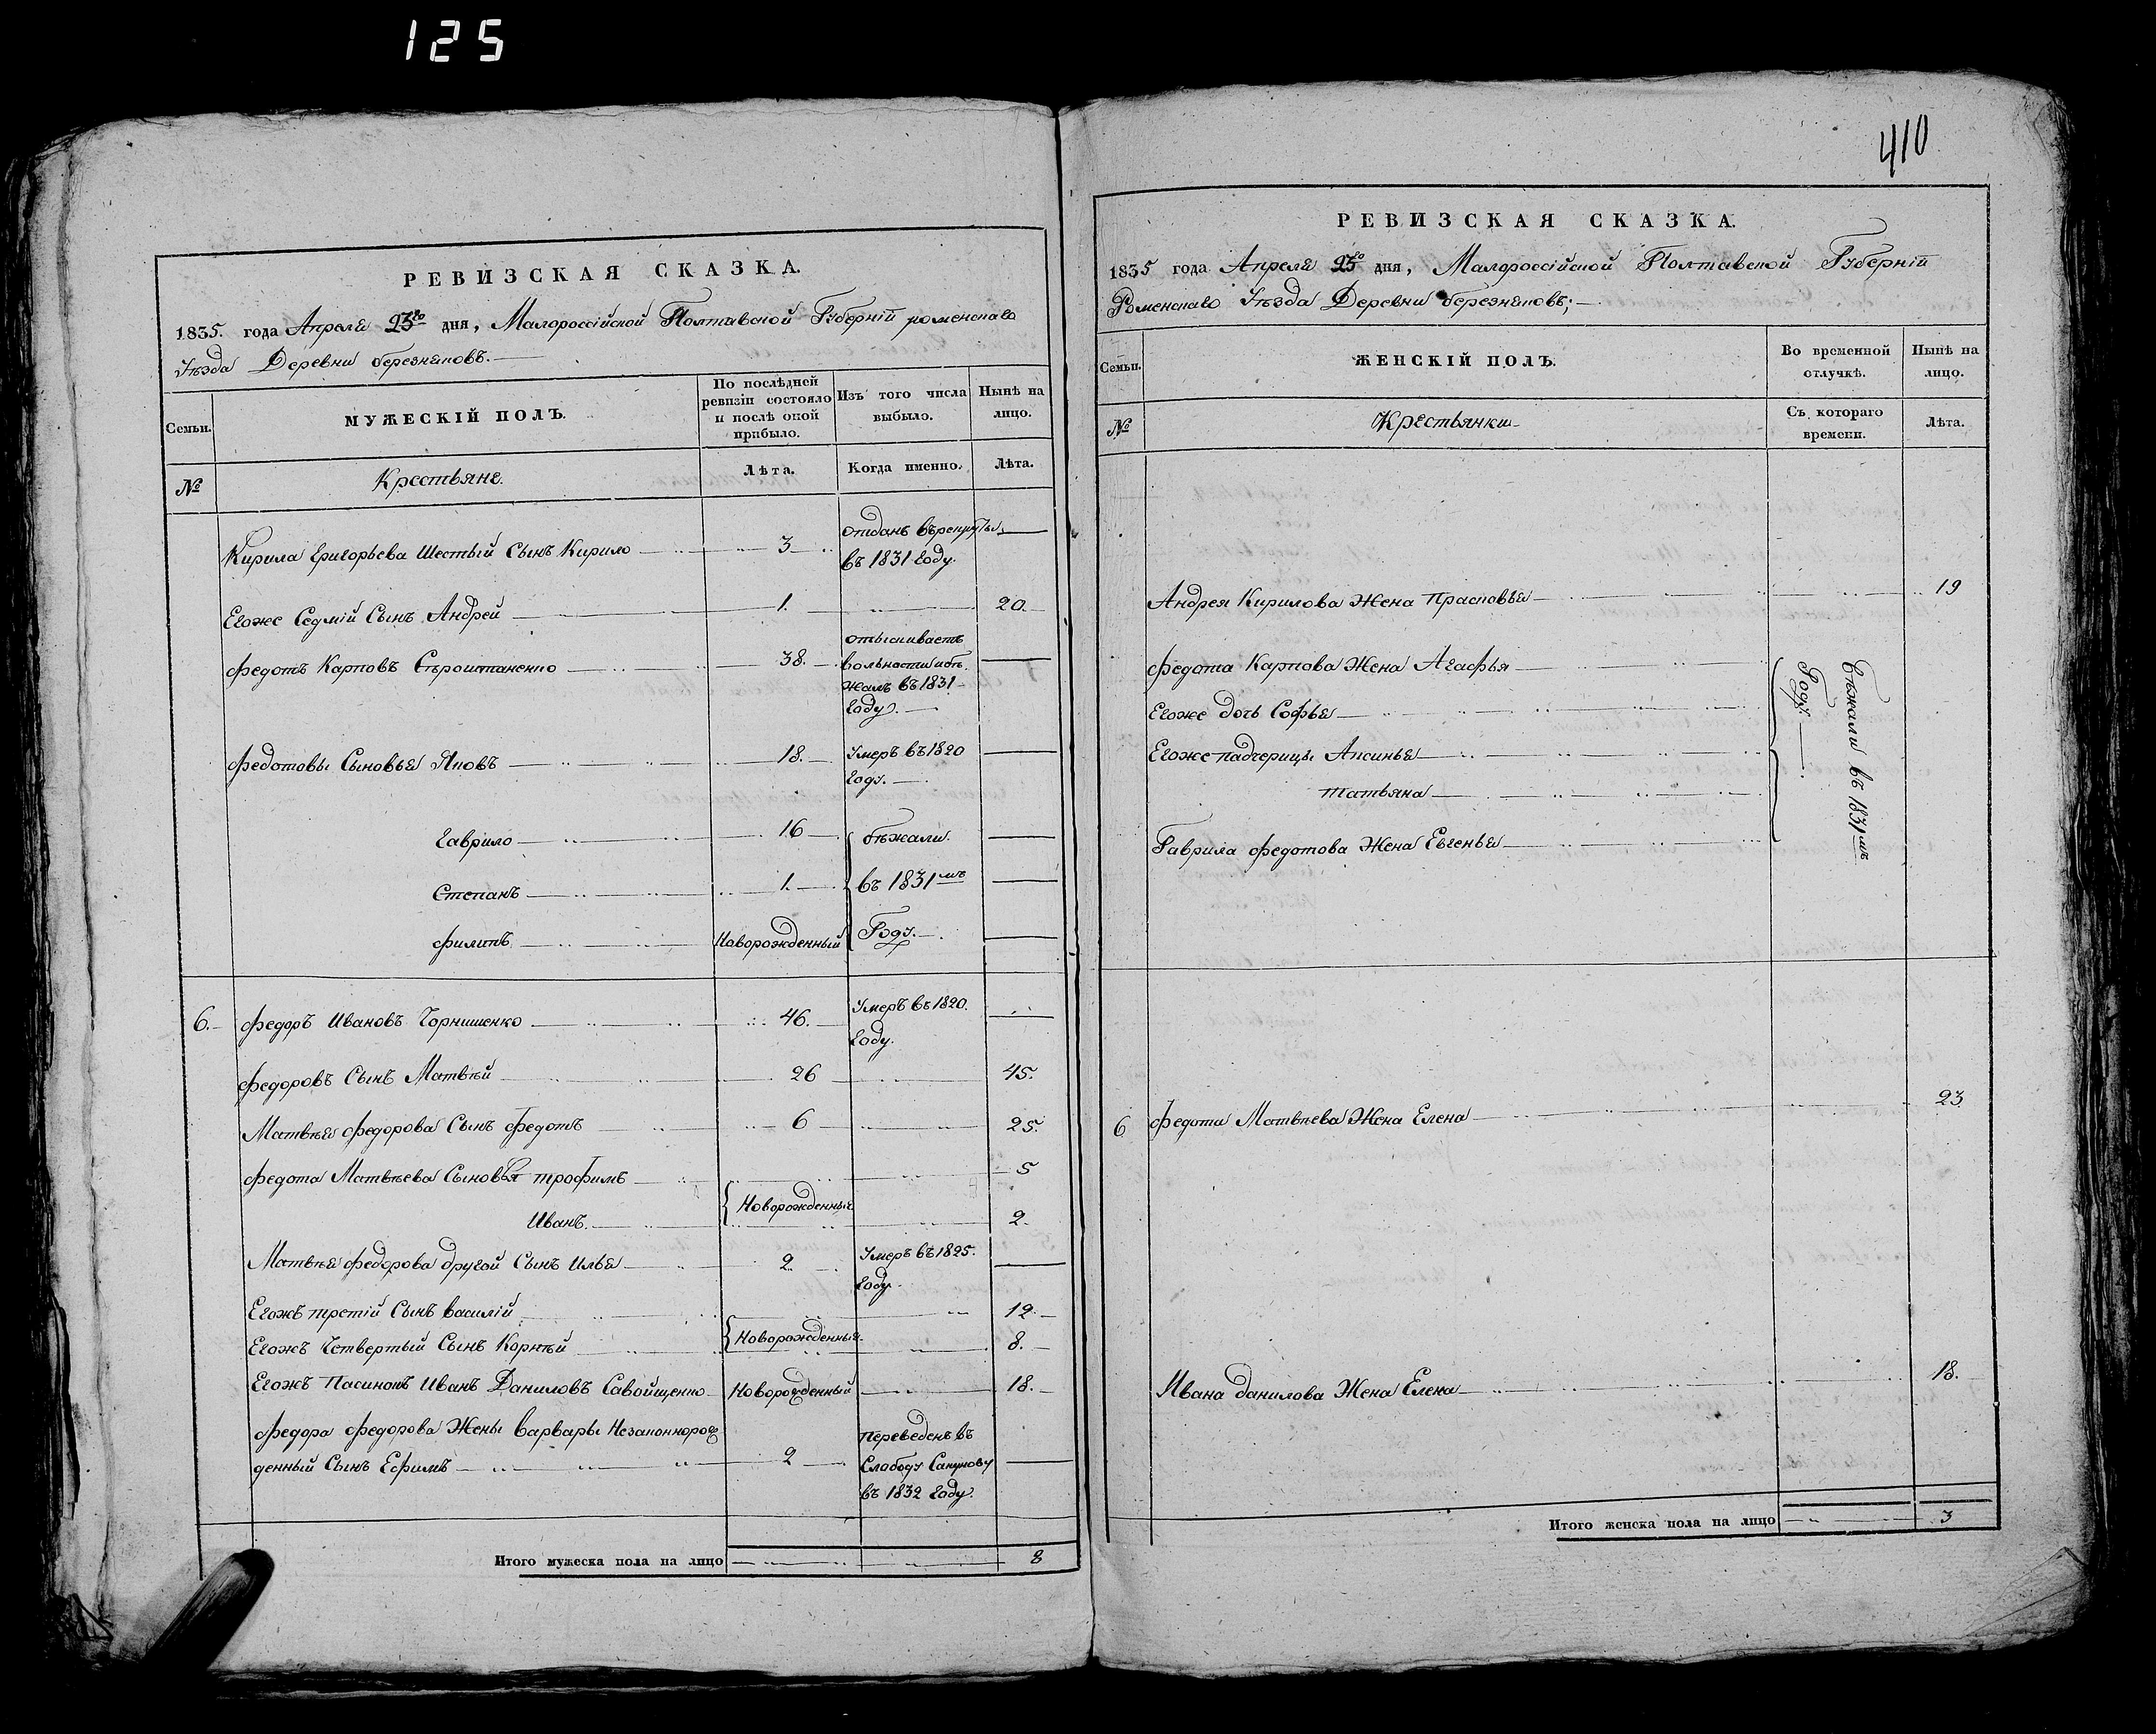 125
410
РЕВИЗСКАЯ СКАЗКА.
1835. года Апреля 23го дня, Малороссійской Полтавской Губерніи роменскаго
Уѣзда Деревни березняковъ.
Семьи.
МУЖЕСКІЙ ПОЛЪ.
По послѣдней ревизіи состояло и послѣ оной прибыло.
Изъ того числа выбыло.
Нынѣ на лицо.
№
Крестьяне.
Лѣта.
Когда именно.
Лѣта.
Кирила Григорьева Шестый Сынъ Кирило 3 отданъ въ рекруты
въ 1831 году.
Егоже Седмій Сынъ Андрей 1. 20.
Федотъ Карповъ 38. отыскиваетъ
вольности бѣ-
жалъ въ 1831
году.
Федотовы Сыновья Яковъ 18. Умеръ въ 1820
году.
Гаврило 16 бѣжали.
Степанъ 1. въ 1831мъ
Филипъ Новорожденный Году.
6. Федоръ Ивановъ Чорнишенко 46. Умеръ въ 1820.
году.
Федоровъ Сынъ Матвѣй 26 45.
Матвѣя Федорова Сынъ Федотъ 6 25.
Федота Матвѣева Сыновья трофимъ 5
Новорожденныя
Иванъ. 2.
Матвѣя Федорова другой Сынъ Илья 2 Умеръ въ 1825.
году.
Егожъ третій Сынъ василій 12.
Новорожденныя
Егожъ Четвертый Сынъ Корнѣй 8.
Егожъ Пасинокъ Иванъ Даниловъ Савойщенко Новорожденный 18.
Федора Федорова Жены варвары Незаконнорож
денный Сынъ Ефимъ 2 переведенъ въ
Слабоду Сакунову
въ 1832 году.
Итого мужеска пола на лицо 8
РЕВИЗСКАЯ СКАЗКА.
1835 года Апреля 23го дня, Малороссійской Полтавской Губерніи
Роменскаго Уѣзда Деревни березняковъ;
Семьи.
ЖЕНСКІЙ ПОЛЪ.
Во временной отлучкѣ.
Нынѣ на лицо.
№
Крестьянки
Съ котораго времени.
Лѣта.
Андрея Кирилова Жена Прасковья 19
Федота Карпова Жена Агафья
Егоже дочь Софья
Егоже падчерицы Аксинья
татьяна
Гаврила Федотова Жена Евгенья
бѣжали въ 1831мъ
Году.
6 Федота Матвѣева Жена Елена 23
Ивана данилова Жена Елена 18.
Итого женска пола на лицо 3